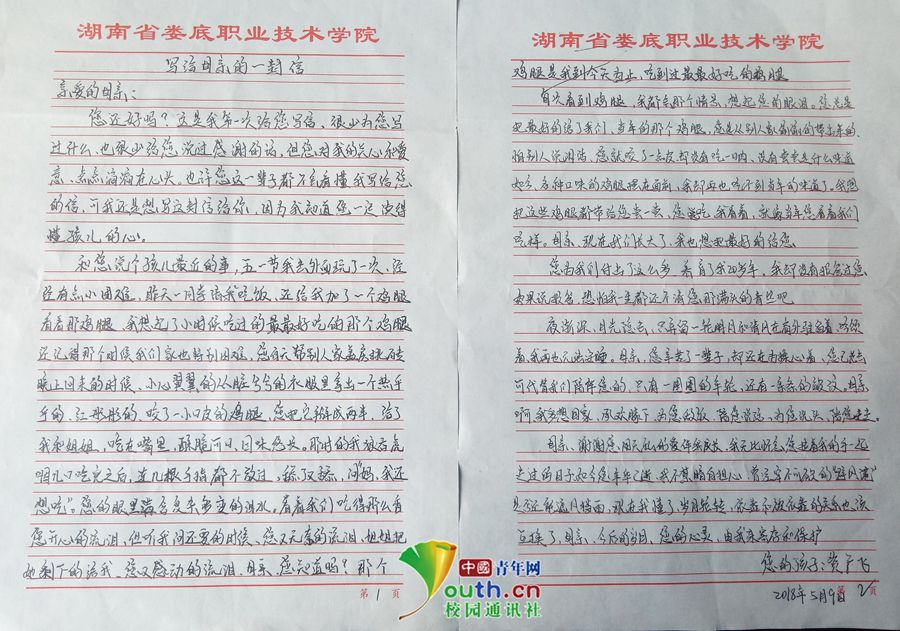 湖南省娄底职业技术学院
写给母亲的一封信
亲爱的母亲：
您还好吗？这是我第一次给您写信，很少为您写
过什么，也很少给您说过感谢的话，但您对我的关心和爱
意，点点滴滴在心头。也许您这一辈子都不会看懂我写给您
的信，可我还是想写这封信给你，因为我知道您一定读得
懂孩儿的心。
和您说个孩儿最近的事，五一节我去外面玩了一次，经
济有点小困难，昨天一同学请我吃饭，还给我加了一个鸡腿
看着那鸡腿，我想起了小时候吃过的最最好吃的那个鸡腿
还记得那个时候我们家也特别困难，您每天帮别人家盖房挑砖
晚上回来的时候，小心翼翼的从脏兮兮的衣服里拿出一个热乎
乎的，红彤彤的，咬了一小口皮的鸡腿，您把它掰成两半，给了
我和姐姐，吃在嘴里，酥脆可口，回味悠长。那时的我狼吞虎
咽几口吃完之后，连几根手指都不放过，舔了又舔，问“妈，我还
想吃”。您的眼里满含着的泪水。看着我们吃得那么香
您开心的流泪，但听我问还要的时候，您又无奈的流泪，姐姐把
她剩下的给我，您又感动的流泪，母亲，您知道吗？那个
第1页
湖南省娄底职业技术学院
鸡腿是我到今天为止，吃到过最最好吃的鸡腿
每次看到鸡腿，我都会那个情景，想起您的眼泪。您总是
把最好的给了我们，当年的那个鸡腿，您是从别人家偷偷的带出来的，
怕别人说闲话，您就咬了一点皮却没有吃一口肉，没有尝尝是什么味道
如今，各种口味的鸡腿摆在面前，我却再也吃不到当年的味道了。我想
把这些鸡腿都带给您尝一尝，您笑吃，我看着，就像当年您看着我们
吃样。母亲，现在我们长大了，我也想把最好的给您
您为我们付出了这么多，养育了我20岁年，我却没有报答过您
如果说报答，恐怕我一生都还不清您那满头的青丝吧
夜渐深，月光隐去，只留一轮明月和清风在窗外陪着，吹吹
着，我再也无法安睡。母亲，您辛苦了一辈子，却还在为操心着，您
可代替我们陪伴您的，只有一圈圈的年轮，还有一条条的皱纹，母亲
啊，我多想回家，承欢膝下，为您做饭，陪您说话，为您洗头，陪您走走。
母亲，谢谢您，因为您的爱伴我成长，我无比怀念您拉着我的手一起
走过的日子如今是年年已逝，我不惧独自担心，曾经牢不可破的“避风港”
是您在帮遮风挡雨，现在我懂了，岁月轮转，依靠与被依靠的关系也该
互换了，母亲，今后的岁月，您的心灵，由我来安存和保护
您的孩子：贺广飞
2018年5月9日
第2页
中国青年网
Youth.cn
校园通讯社